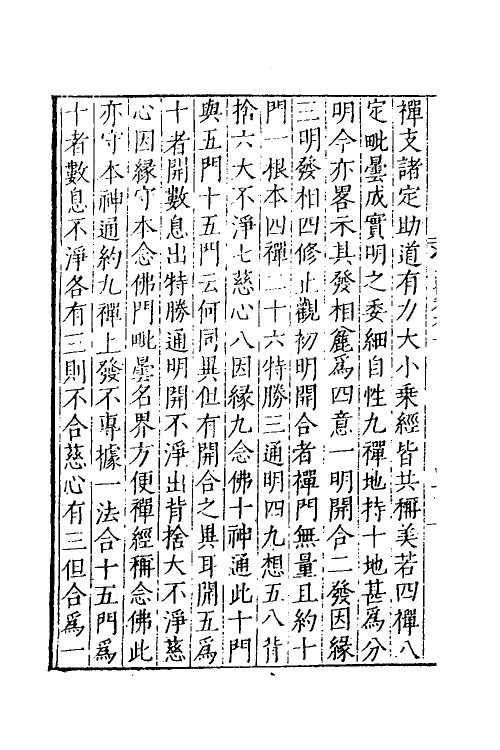 禪支諸定助道有力大小乘經皆共稱美若四禪八
定毗曇成實明之委細自性九禪地持十地甚爲分
明今亦畧示其發相麄爲四意一明開合二發因緣
三明發相四修止觀初明開合者禪門無量且約十
門一根本四禪二十六特勝三通明四九想五八背
捨六大不淨七慈心八因緣九念佛十神通此十門
與五門十五門云何同異但有開合之異耳開五爲
十者開數息出特勝通明開不淨出背捨大不淨慈
心因緣守本念佛門毗曇名界方便禪經稱念佛此
亦守本神通約九禪上發不專據一法合十五門爲
十者數息不淨各有三則不合慈心有三但合爲一